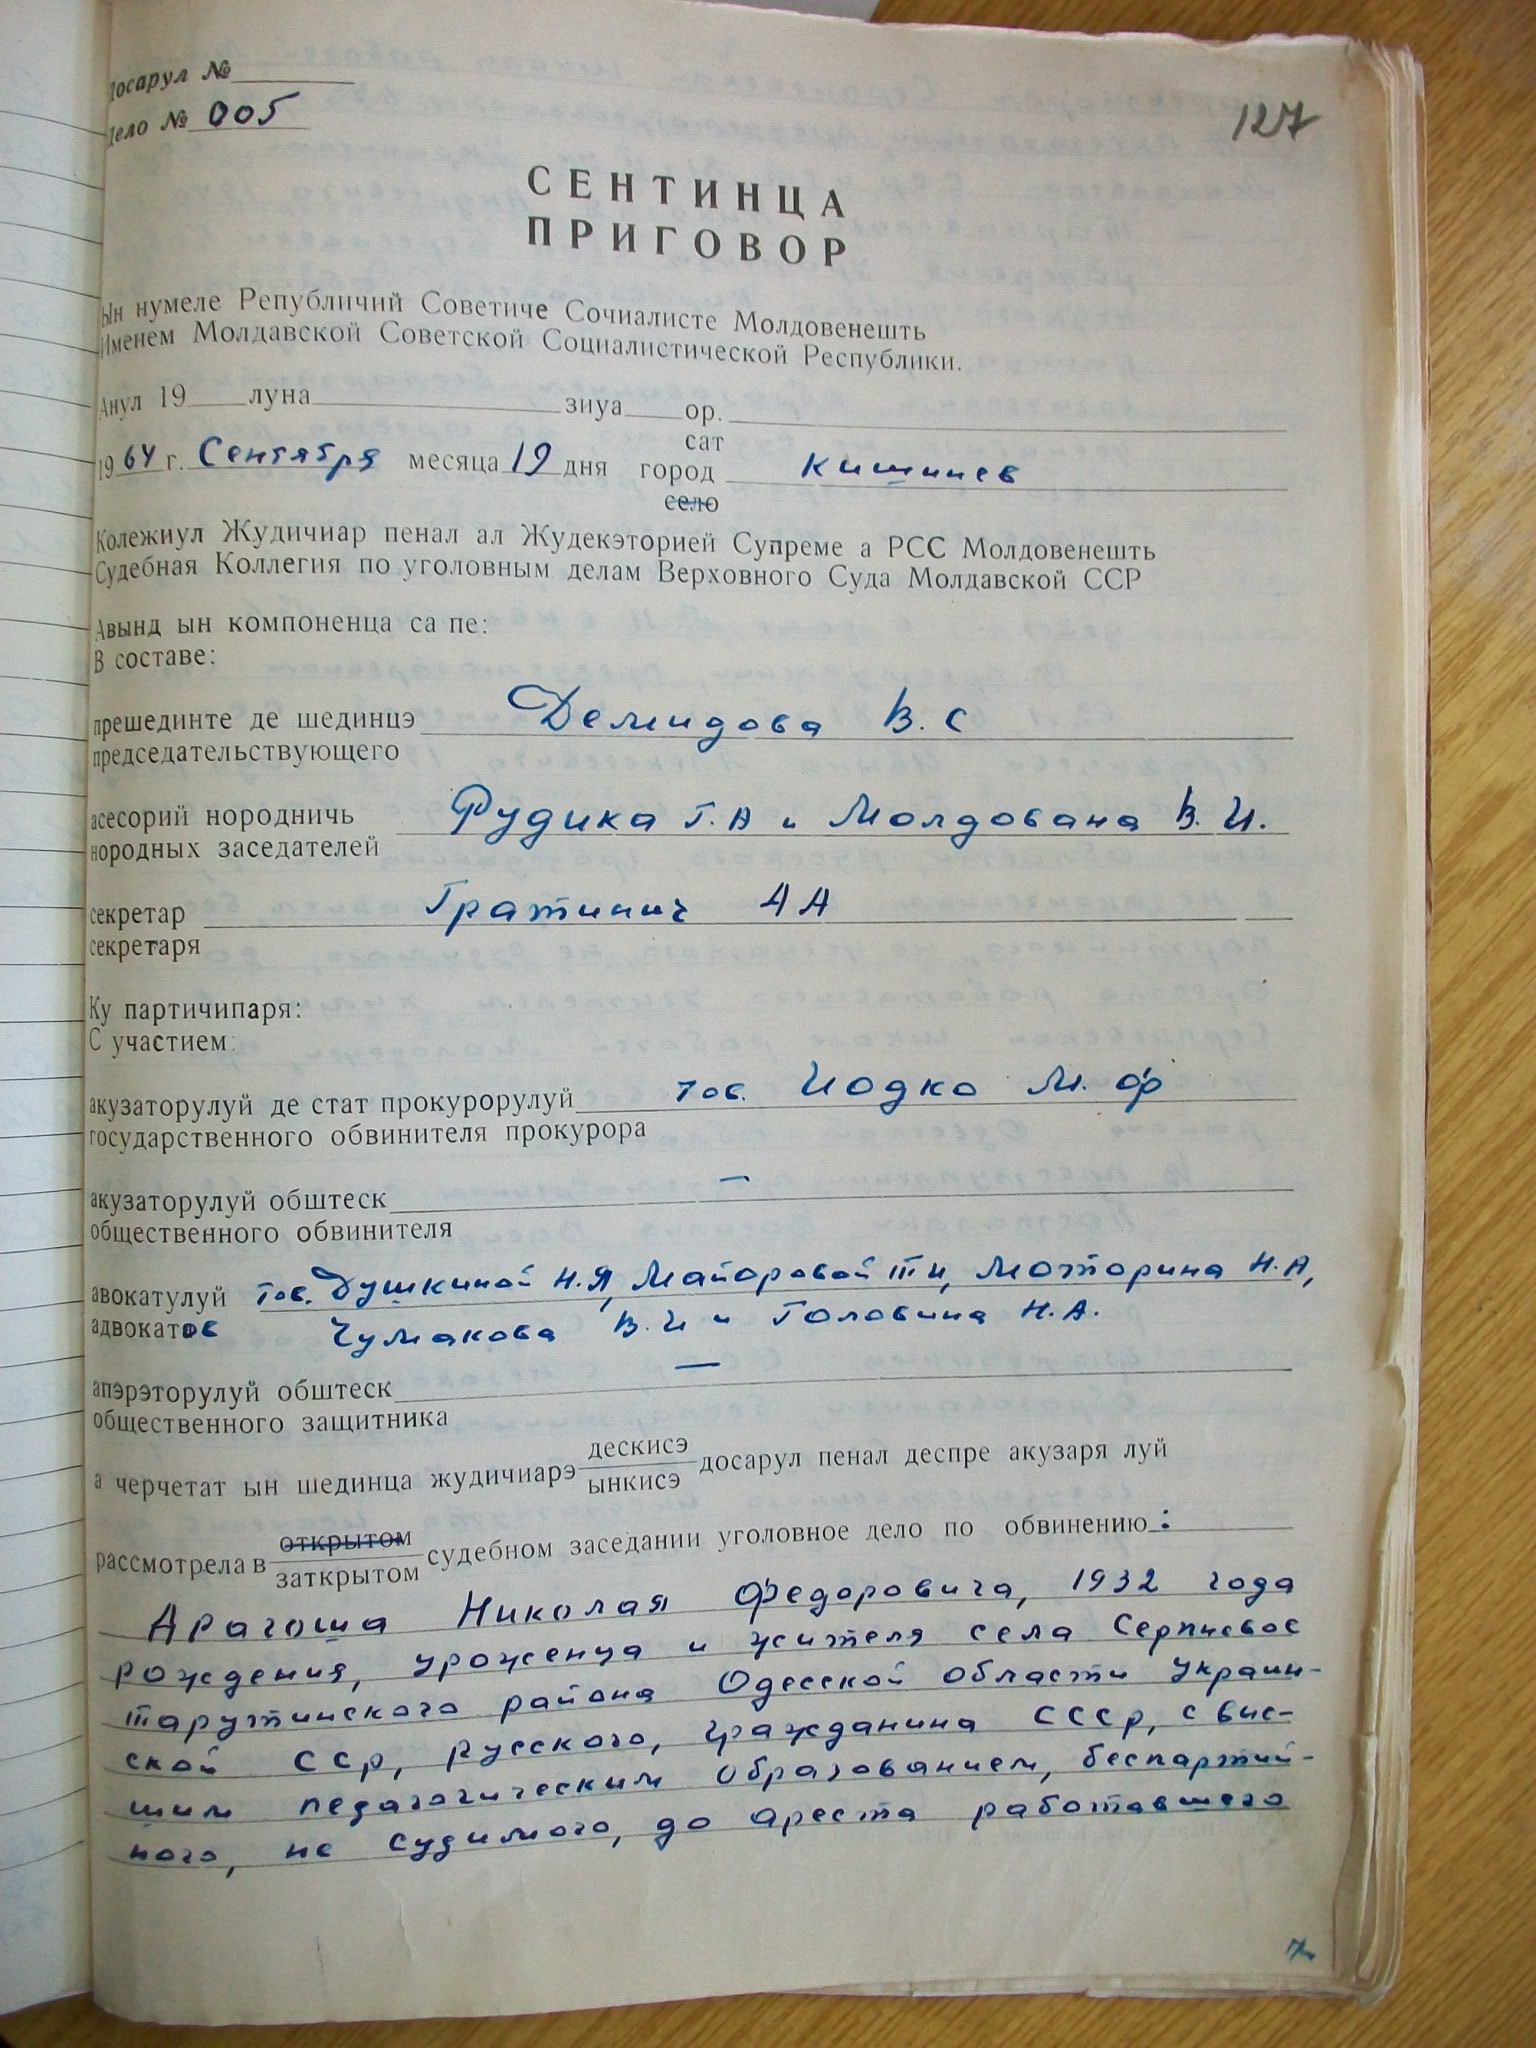 Досарул №
Дело № 005
127
СЕНТИНЦА
ПРИГОВОР
Ын нумеле Републичий Советиче Сочиалисте Молдовенешть
Именем Молдавской Советской Социалистической Республики.
Анул 19 луна зиуа ор.
сат
1964 г. Сентября месяца 19 дня город Кишинев
село
Колежиул Жудичиар пенал ал Жудекэторией Супреме а РСС Молдовенешть
Судебная Коллегия по уголовным делам Верховного Суда Молдавской ССР
Авынд ын компоненца са пе:
В составе:
прешединте де шединцэ Демидова В. С
председательствующего
асесорий нородничь Рудика Г. А и Молдована В. И.
нородных заседателей
секретар Гратинич АА
секретаря
Ку партичипаря:
С участием:
акузаторулуй де стат прокурорулуй тов. Иодко М. Ф
государственного обвинителя прокурора
акузаторулуй обштеск —
общественного обвинителя
авокатулуй тов. Душкиной Н.Я, Майоровой Т И, Моторина Н. А,
адвокатов Чумакова В. И и Головина Н. А.
апэрэторулуй обштеск —
общественного защитника
а черчетат ын шединца жудичиарэ дескисэ/ынкисэ досарул пенал деспре акузаря луй
рассмотрела в открытом/заткрытом судебном заседании уголовное дело по обвинению :
Драгоша Николая Федоровича, 1932 года
рождения, уроженца и жителя села Серпневое
тарутинского района Одесской области Украин-
ской ССР, русского, гражданина СССР, с выс-
шим педагогическим образованием, беспартий-
ного, не судимого, до ареста работавшего